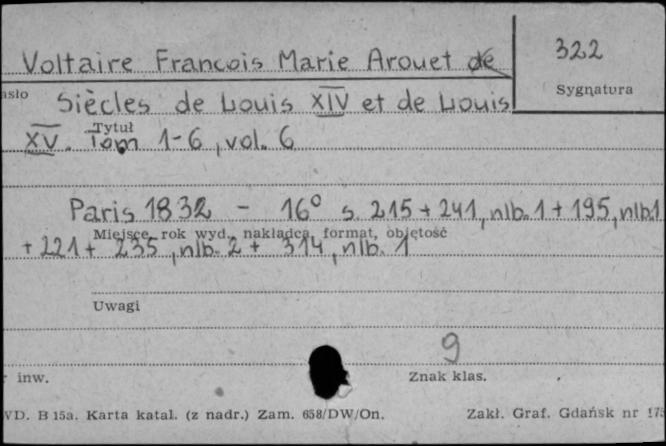 Voltaire Francois Marie Arouet de
322
asło
Sygnatura
Siècles de Louis XIV et de Louis
XV. Tom 1-6, vol. 6
Tytuł
Paris 1832 - 16° s. 215 + 241, nlb. 1 + 195, nlb. 1
Miejsce, rok wyd., nakładca, format, objętość
+ 221 + 235, nlb. 2 + 314, nlb. 1
Uwagi
9
r inw.
Znak klas.
WD. B 15a. Karta katal. (z nadr.) Zam. 658/DW/On.
Zakł. Graf. Gdańsk nr